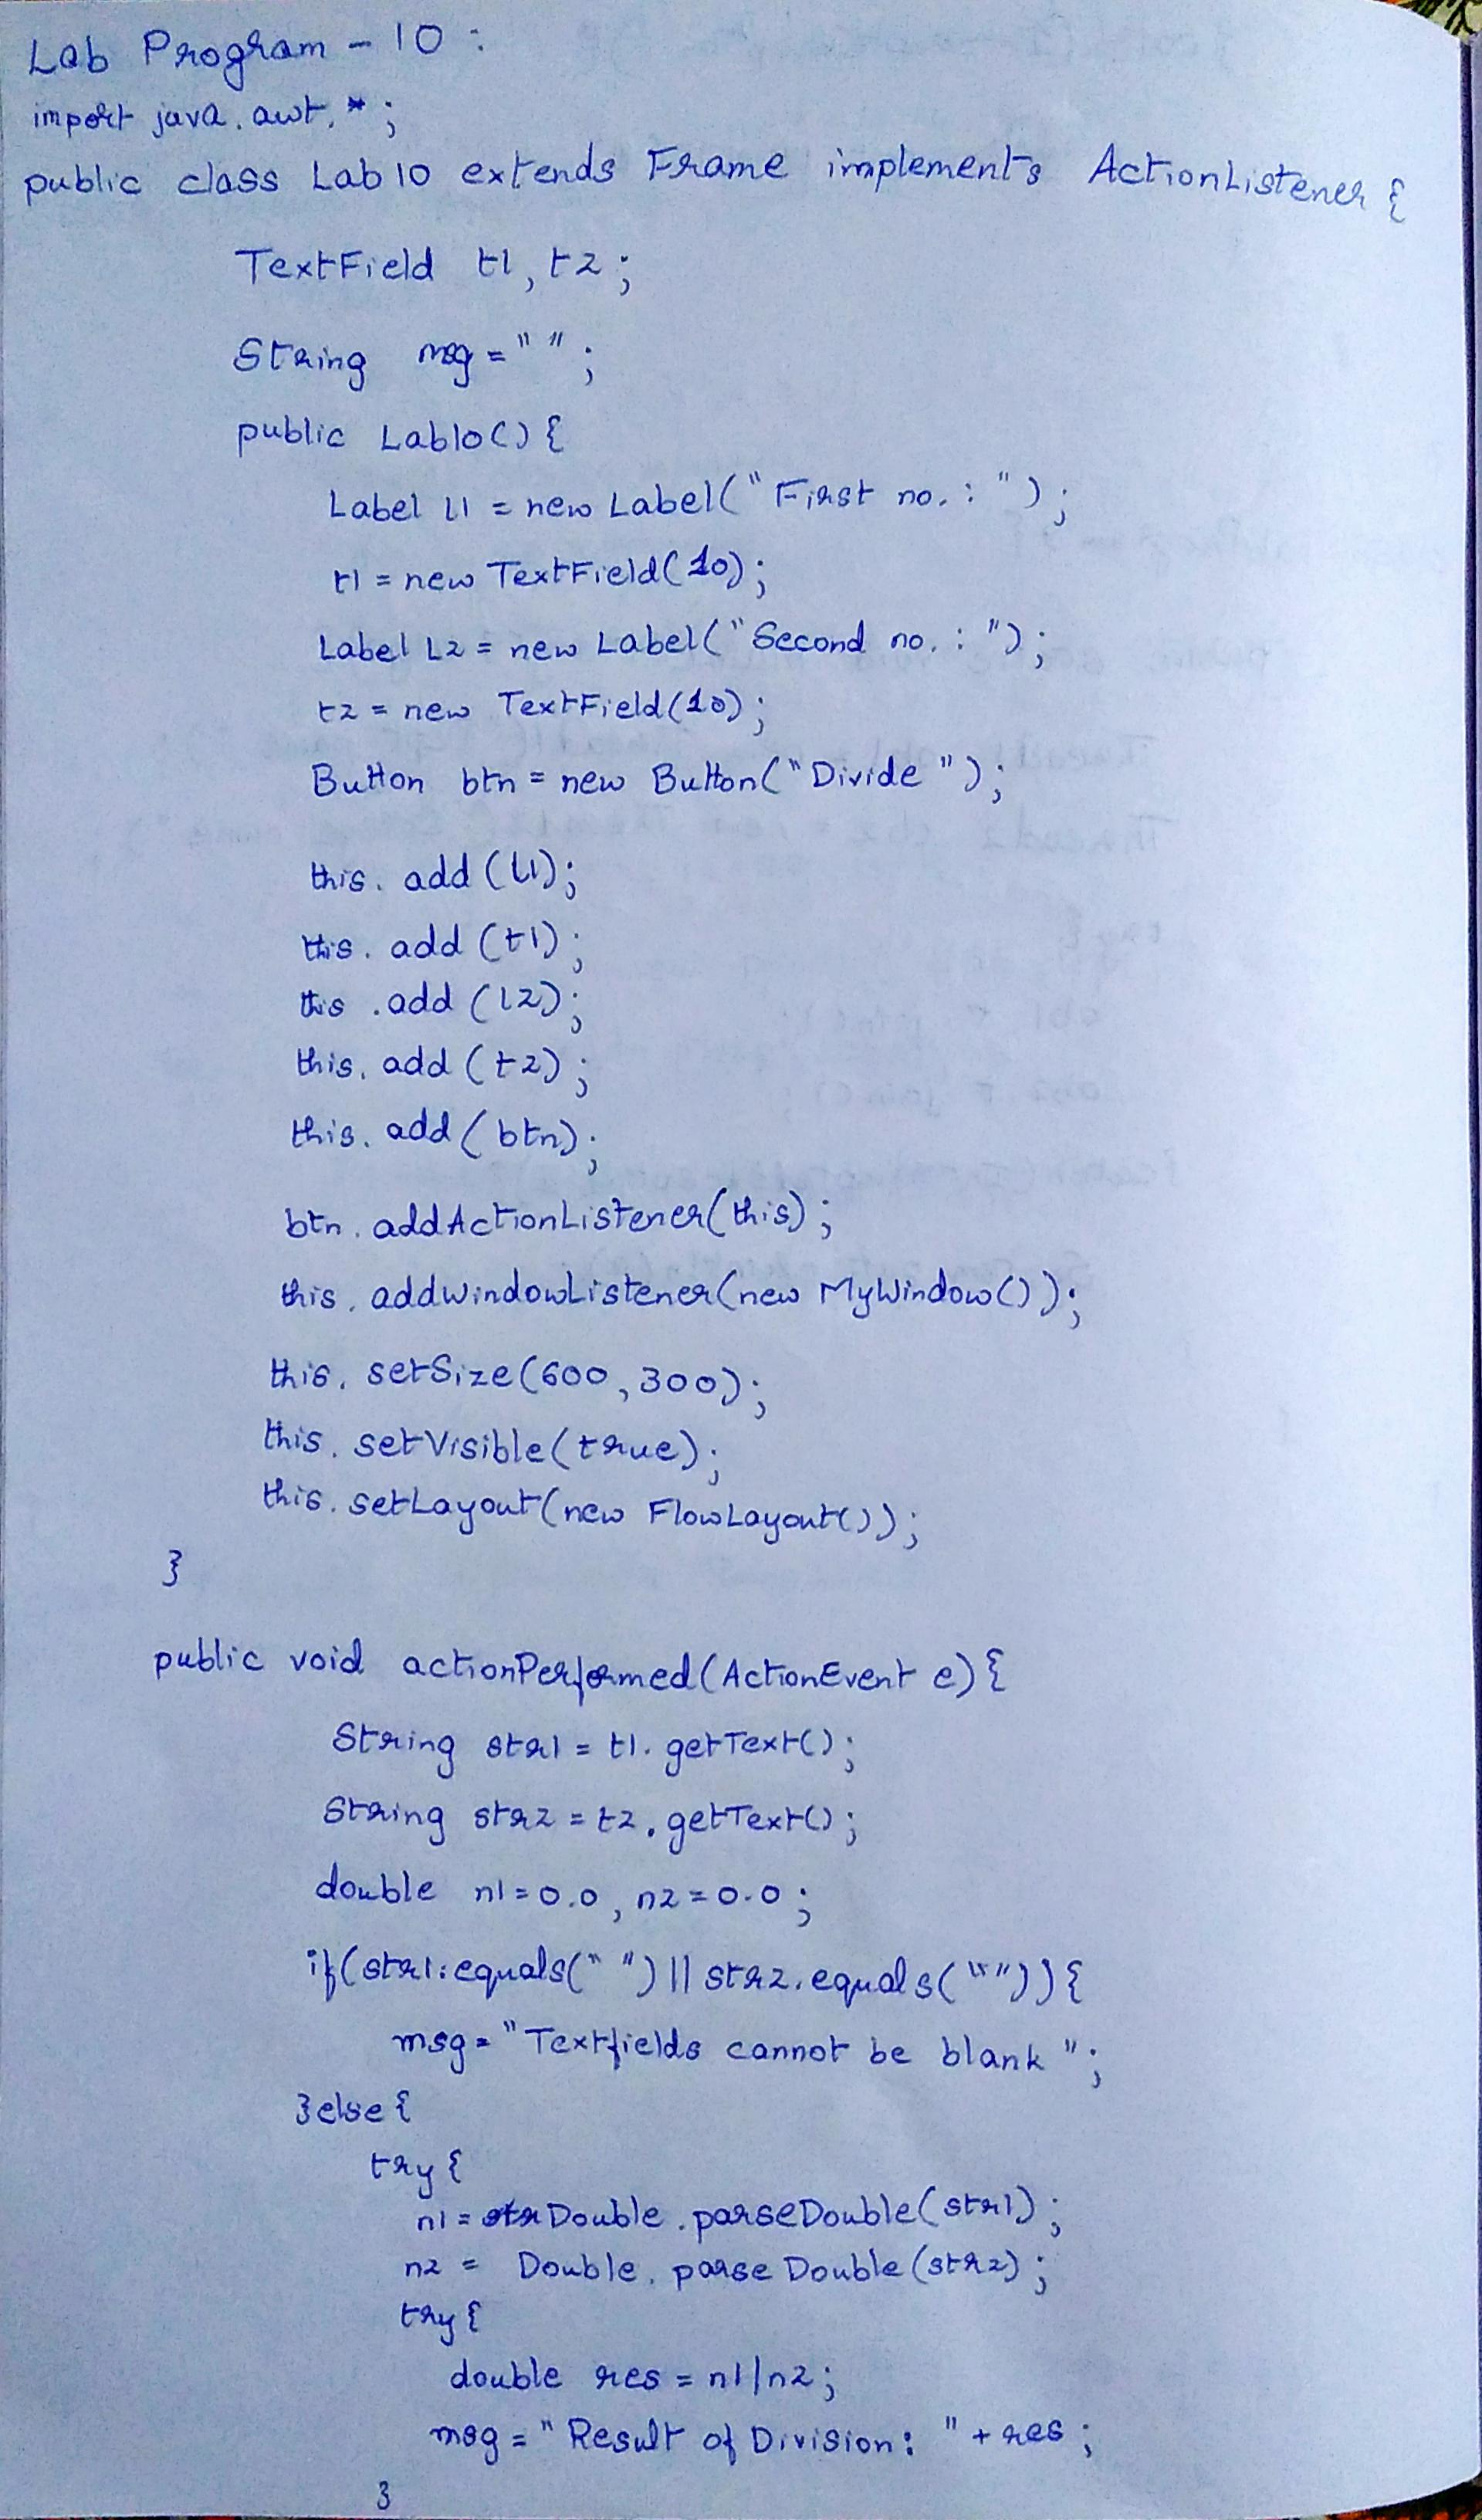 Lab Program - 10 :
import java.awt.*;
public class Lab10 extends Frame implements ActionListener {
TextField t1, t2;
String msg = " ";
public Lab10() {
Label l1 = new Label("First no. : ");
t1 = new TextField(10);
Label L2 = new Label("Second no. : ");
t2 = new TextField(10);
Button btn = new Button("Divide");
this.add(l1);
this.add(t1);
this.add(l2);
this.add(t2);
this.add(btn);
btn.addActionListener(this);
this.addWindowListener(new MyWindow());
this.setSize(600,300);
this.setVisible(true);
this.setLayout(new FlowLayout());
}
public void actionPerformed(ActionEvent e) {
String str1 = t1.getText();
String str2 = t2.getText();
double n1=0.0, n2=0.0;
if(str1.equals(" ") || str2.equals("")) {
msg = "Textfields cannot be blank";
}else{
try {
n1 = Double.parseDouble(str1);
n2 = Double.parseDouble(str2);
try {
double res = n1/n2;
msg = "Result of Division: " + res;
}